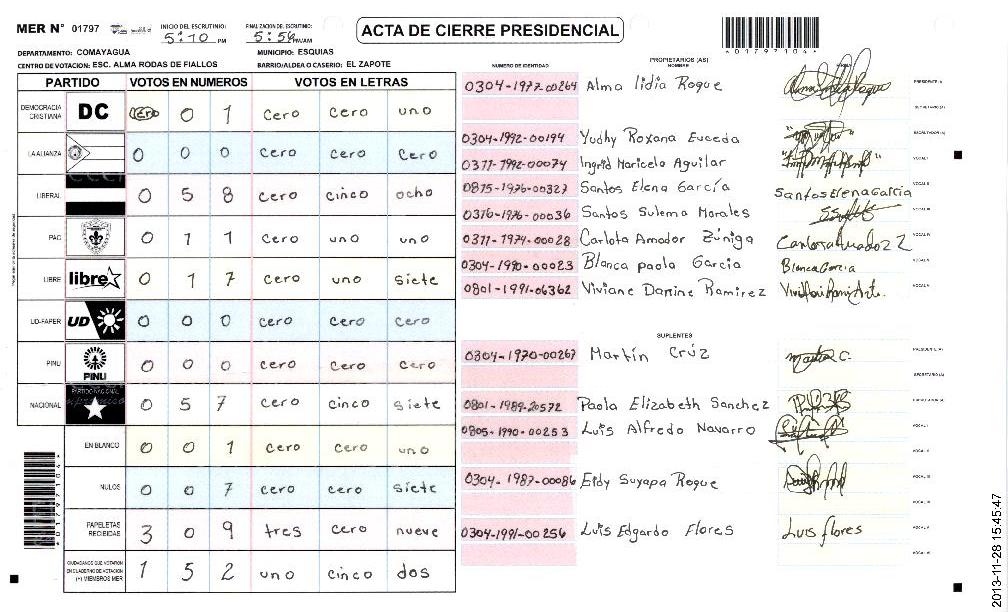 MER Nº 01797
INICIO DEL ESCRUTINIO: 5:10 PM
FINALIZACION DEL ESCRUTINIO: 5:56 PM/AM
ACTA DE CIERRE PRESIDENCIAL
*01797104*
DEPARTAMENTO: COMAYAGUA
MUNICIPIO: ESQUIAS
CENTRO DE VOTACION: ESC. ALMA RODAS DE FIALLOS
BARRIO/ALDEA O CASERIO: EL ZAPOTE
PARTIDO VOTOS EN NUMEROS VOTOS EN LETRAS
DEMOCRACIA CRISTIANA DC cero 0 1 cero cero uno
LA ALIANZA 0 0 0 cero cero cero
LIBERAL 0 5 8 cero cinco ocho
PAC 0 1 1 cero uno uno
LIBRE libre 0 1 7 cero uno siete
UD-FAPER UD 0 0 0 cero cero cero
PINU PINU 0 0 0 cero cero cero
NACIONAL PARTIDO NACIONAL 0 5 7 cero cinco siete
EN BLANCO 0 0 1 cero cero uno
NULOS 0 0 7 cero cero siete
PAPELETAS RECIBIDAS 3 0 9 tres cero nueve
CIUDADANOS QUE VOTARON EN CUADERNO DE VOTACION (+) MIEMBROS MER 1 5 2 uno cinco dos
*01797104*
PROPIETARIOS (AS)
NUMERO DE IDENTIDAD NOMBRE FIRMA
0304-1977-00264 Alma lidia Roque PRESIDENTE (A)
SECRETARIO (A)
0304-1992-00194 Yudhy Roxana Euceda ESCRUTADOR (A)
0311-1992-00074 Ingrid Maricela Aguilar VOCAL I
0875-1976-00327 Santos Elena García Santos Elena Garcia VOCAL II
0376-1976-00036 Santos Sulema Morales VOCAL III
0311-1974-00028 Carlota Amador Zúniga VOCAL IV
0304-1990-00023 Blanca paola Garcia Blanca Garcia VOCAL V
0801-1991-06362 Viviane Danine Ramirez VOCAL VI
SUPLENTES
0304-1970-00267 Martín Crúz Martin C. PRESIDENTE (A)
SECRETARIO (A)
0801-1989-20572 Paola Elizabeth Sanchez ESCRUTADOR (A)
0805-1990-00253 Luis Alfredo Navarro VOCAL I
VOCAL II
0304-1987-00086 Eidy Suyapa Roque VOCAL III
VOCAL IV
0304-1991-00256 Luis Edgardo Flores Luis flores VOCAL V
VOCAL VI
2013-11-28 15:45:47